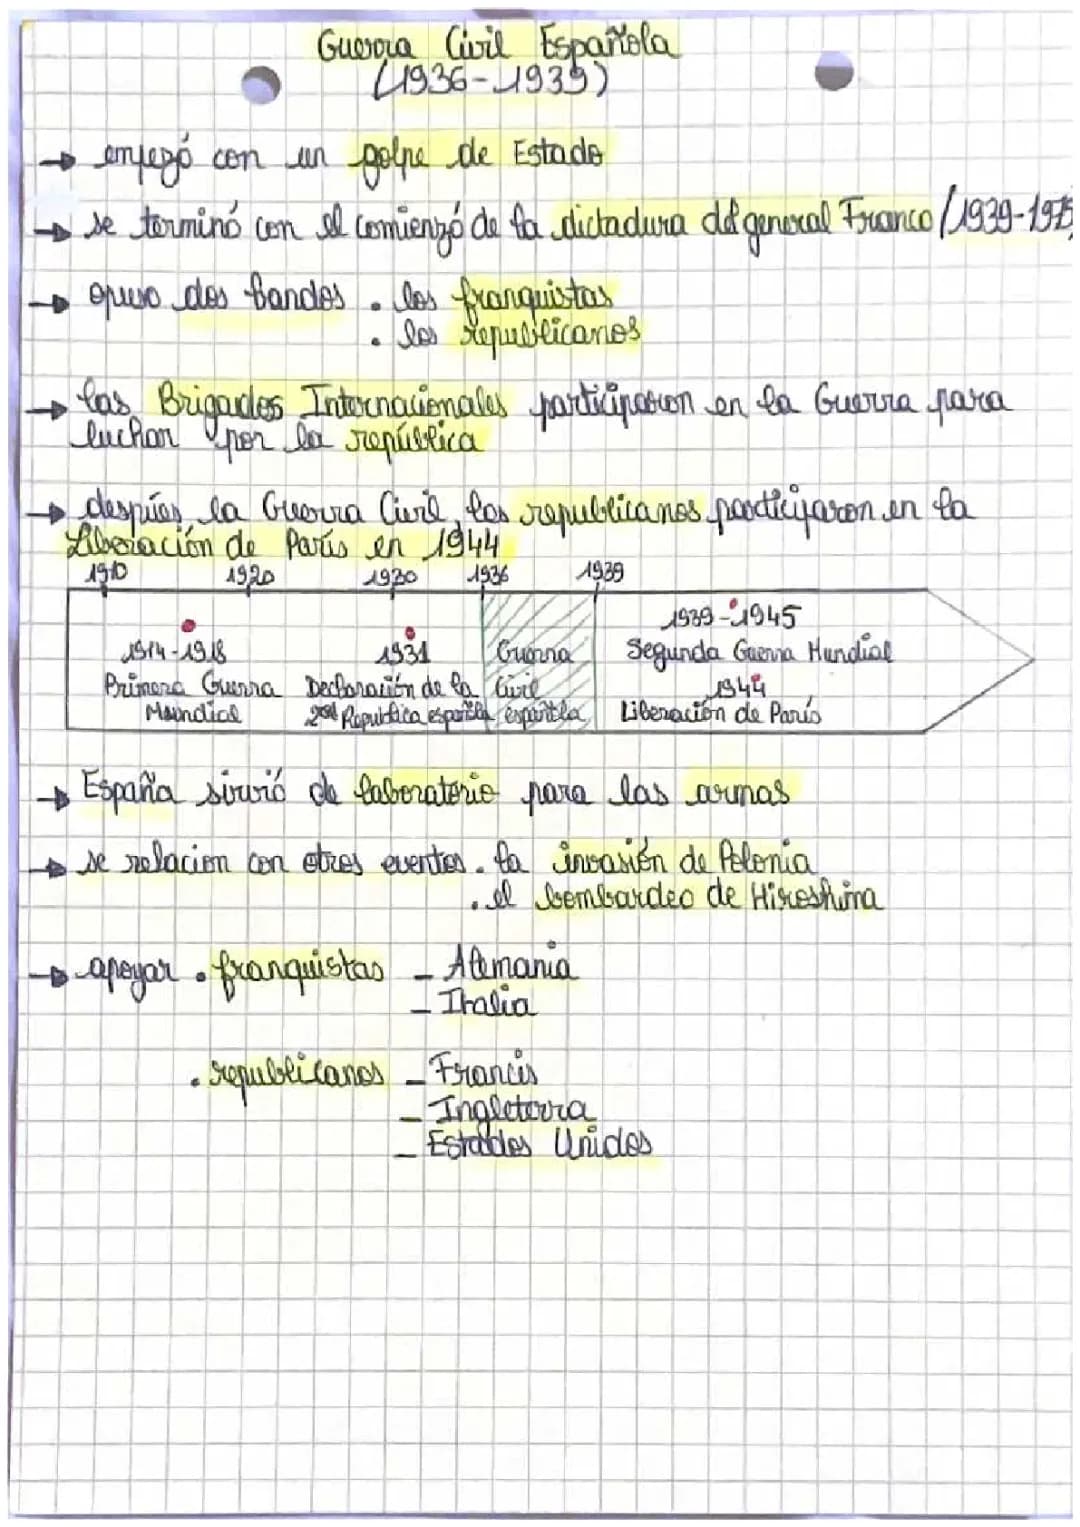 Guerra Civil Española
(1936-1939)
→ empezó con un golpe de Estado
→ se terminó con el comienzó de la dictadura del general Franco (1939-1975)
→ opuso dos bandos . los franquistas
. los republicanos
→ las Brigades Internacionales participaron en la Guerra para
luchar por la república
→ despúes la Guerra Civil, los republicanos participaron en la
Liberación de París en 1944
1910 1920 1930 1936 1939
1939-1945
1914-1918 1931 Guerra Segunda Guerra Mundial
Primera Guerra Declaración de la Civil 1944
Mundial 2nd Republica española española Liberación de París
→ España sirvió de laboratorio para las armas
→ se relacion con otros eventos . la invasión de Polonia
. el bombardeo de Hiroshima
→ apoyar . franquistas - Alemania
- Italia
. republicanos - Francis
- Ingleterra
- Estados Unidos